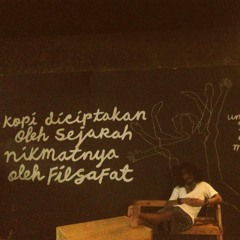 kopi diciptakan
oleh sejarah
nikmatnya
oleh Filsafat